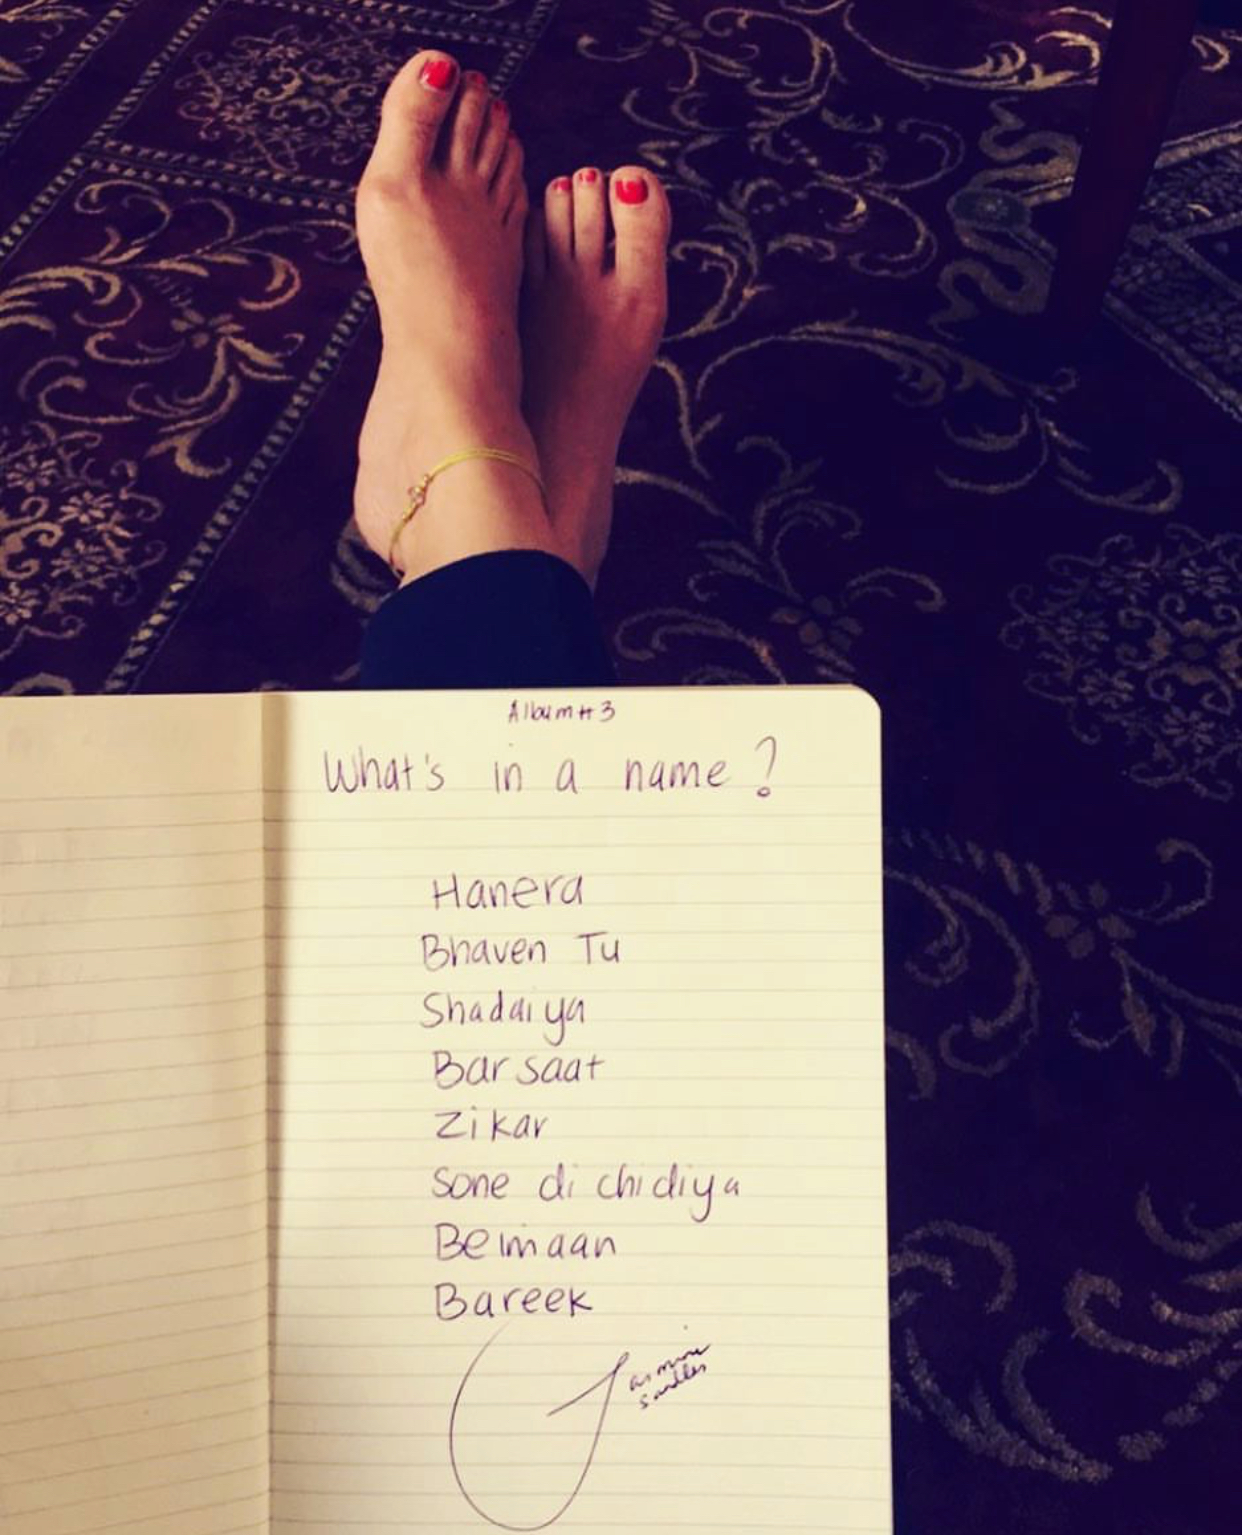 Album # 3
What's in a name?
Hanera
Bhaven Tu
Shadaiya
Barsaat
Zikar
Sone di chidiya
Beimaan
Bareek
Jasmine
Sandlas